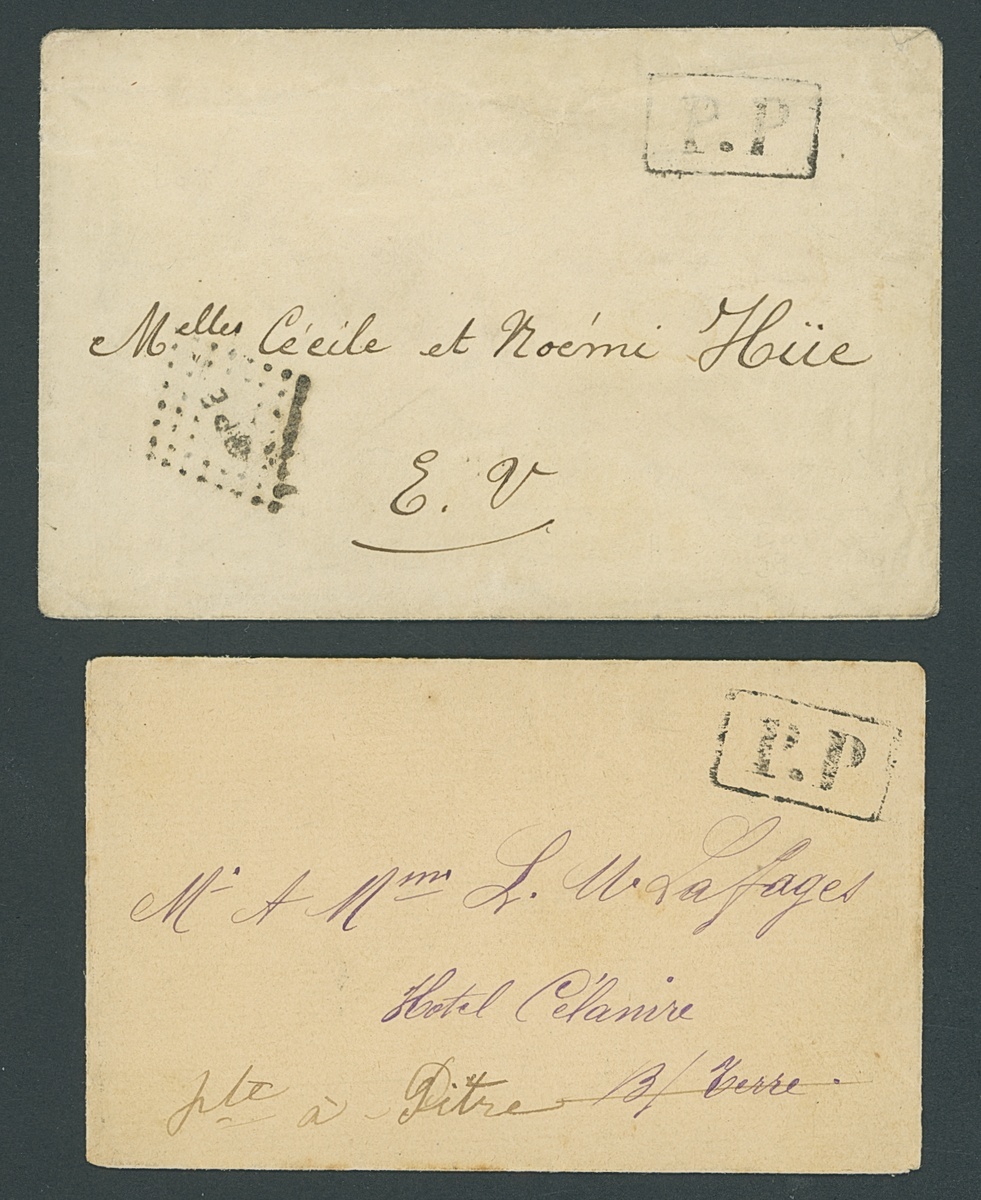 P.P
Melles Cécile et Noémi Hüe
E. V
P.P
Mr A Mme L. W Lafages
Hotel Célanire
pte à Pitre B/ Terre